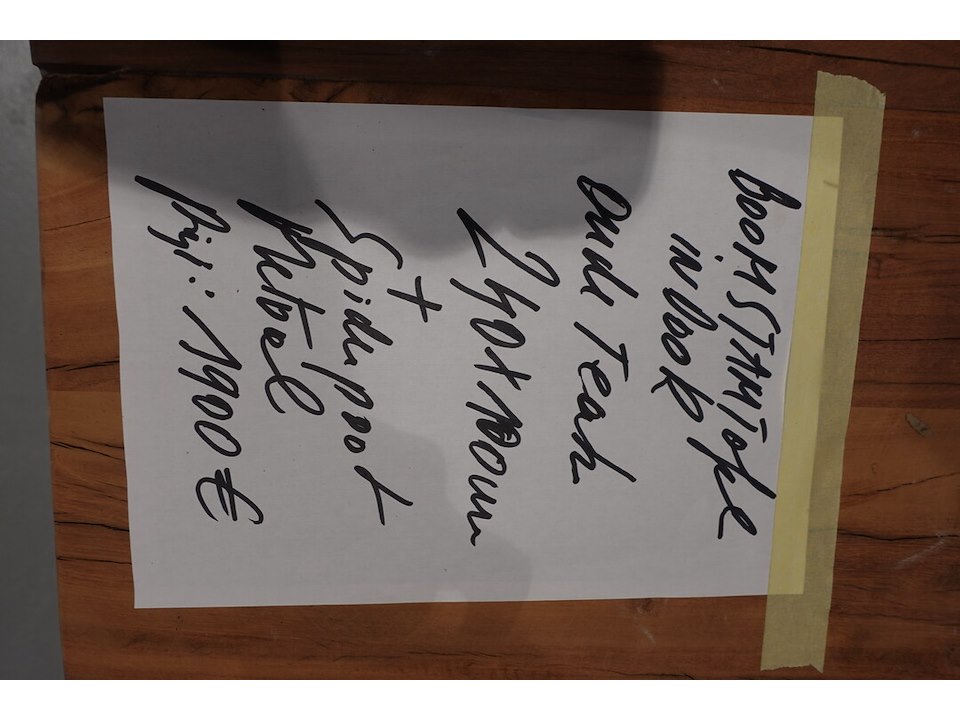 BOOMSTAMTAFEL
in look
oude Teak
240 x 100 cm
+
Spiderpoot
Metaal
Prijs: 1900 €